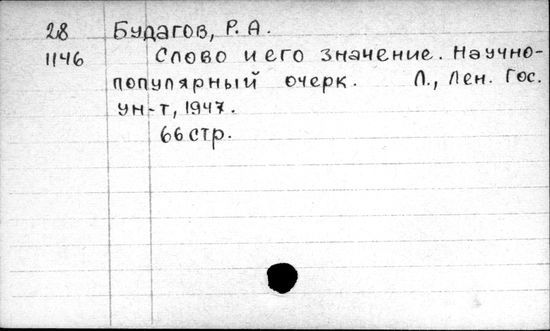 28 Будагов, Р. А.
1146 Слово и его значение. Научно-
популярный очерк. Л., Лен. Гос.
ун-т, 1947.
66 стр.